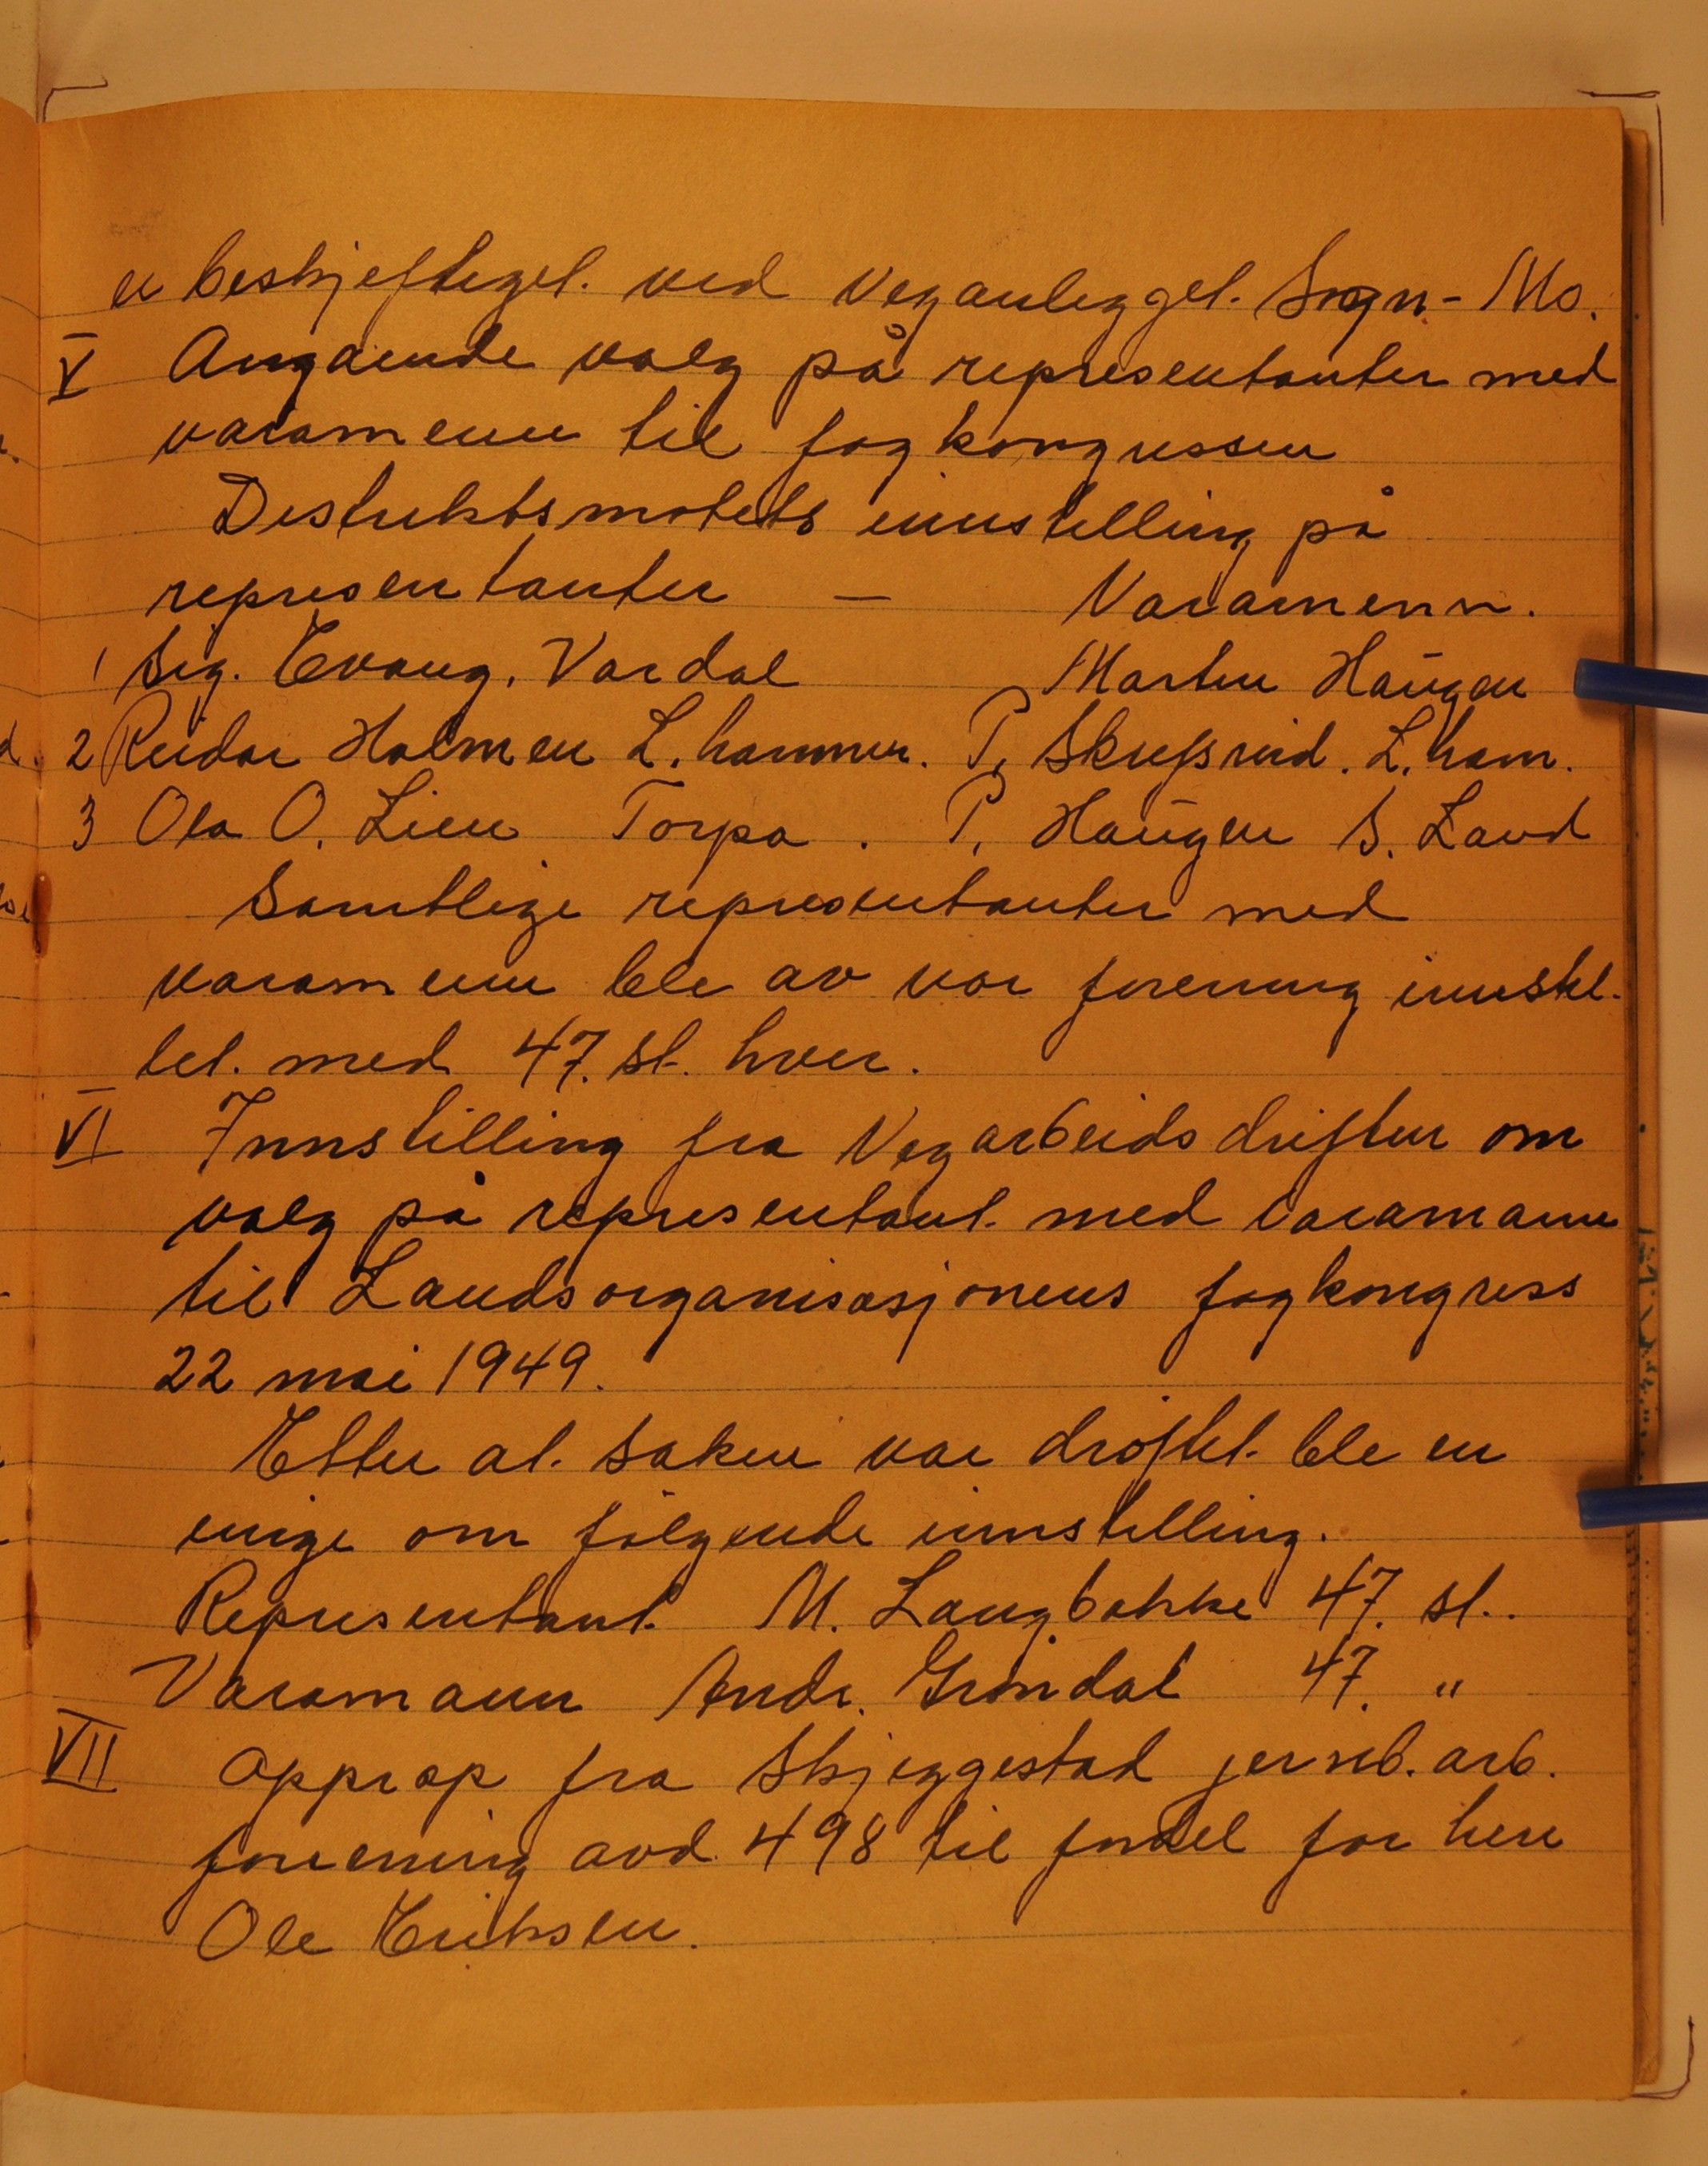 er beskjeftiget ved Veganlegget Sogn - Mo.
V Angående valg på representanter med
varamenn til fagkongressen
Destriktsmøtets innstelling på
representanter — Varamenn.
1 Sig. Evang. Vardal Martin Haugen
2 Reidar Holmen L. hammer. P. Skrefsrud. L. ham.
3 Ola O. Lien Torpa . P. Haugen S. Land
Samtlige representanter med
varamenn ble av vor forening innstel-
let med 47. st. hver.
VI Innstilling fra Vegarbeidsdriften om
valg på representant med varamann
til Landsorganisasjonens fagkongress
22 mai 1949.
Etter at saken var drøftet ble en
enige om følgende innstelling.
Representant M. Langbakke 47. st.
Varamann Andr. Grindal 47. "
VII Opprop fra Skjeggestad jernb. arb.
forening avd. 498 til fordel for herr
Ole Eriksen.